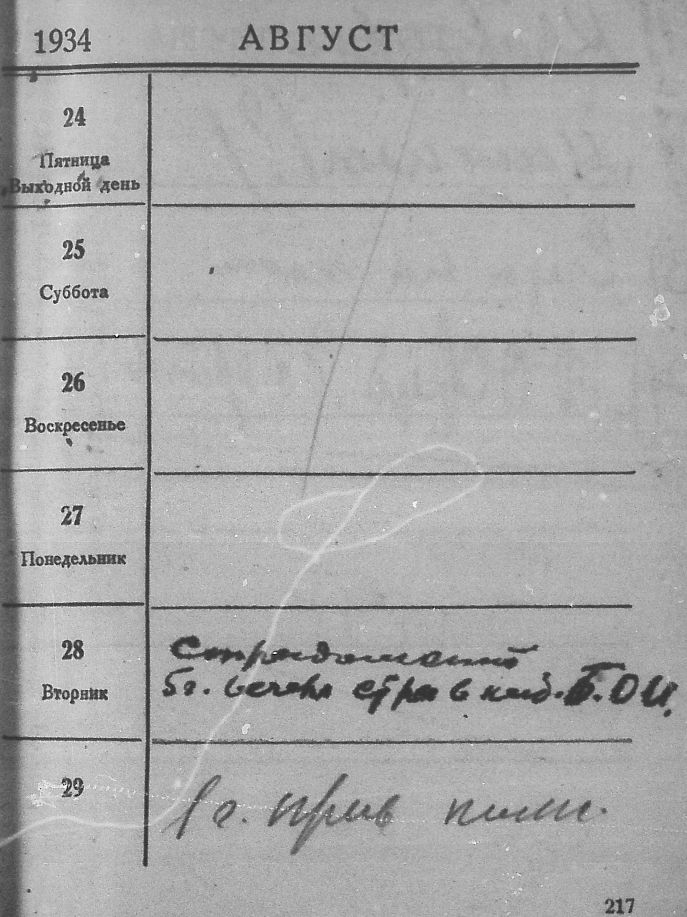 1934 АВГУСТ
24
Пятница
Выходной день
25
Суббота
26
Воскресенье
27
Понедельник
28
Вторник
5 г. вечера в каб.
29
1 г.
217